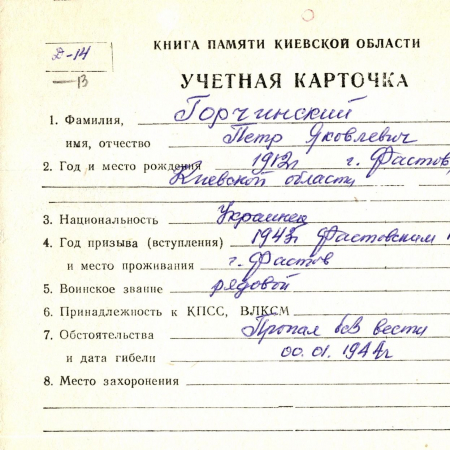 Д-14
—13
КНИГА ПАМЯТИ КИЕВСКОЙ ОБЛАСТИ
УЧЕТНАЯ КАРТОЧКА
1. Фамилия, Горчинский
имя, отчество Петр Яковлевич
2. Год и место рождения 1912г г. Фастов,
Киевской области
3. Национальность Украинец
4. Год призыва (вступления) 1943г Фастовским
и место проживания г. Фастов
5. Воинское звание рядовой
6. Принадлежность к КПСС, ВЛКСМ
7. Обстоятельства Пропал без вести
и дата гибели 00.01.1944г
8. Место захоронения